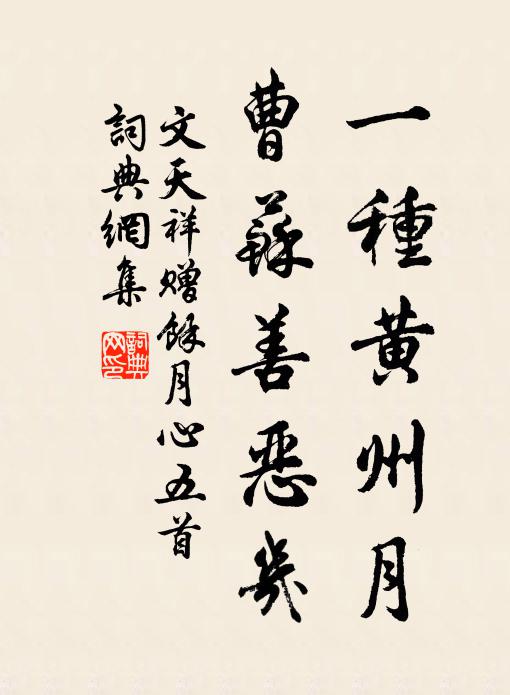 一種黃州月
曹蘇善惡幾
文天祥贈餘月心五首
詞典網集
詞典網印